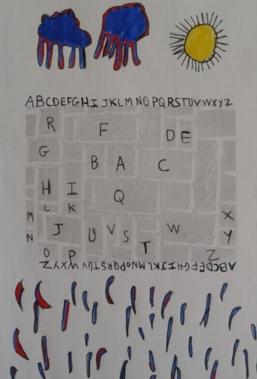 ABCDEFGHIJKLMNOPQRSTUVWXYZ
R F D E
G
B A C
H I Q
L K
M X
J U V S W
N T Y
O P Z
ABCDEFGHIJKLMNOPQRSTUVWXYZ